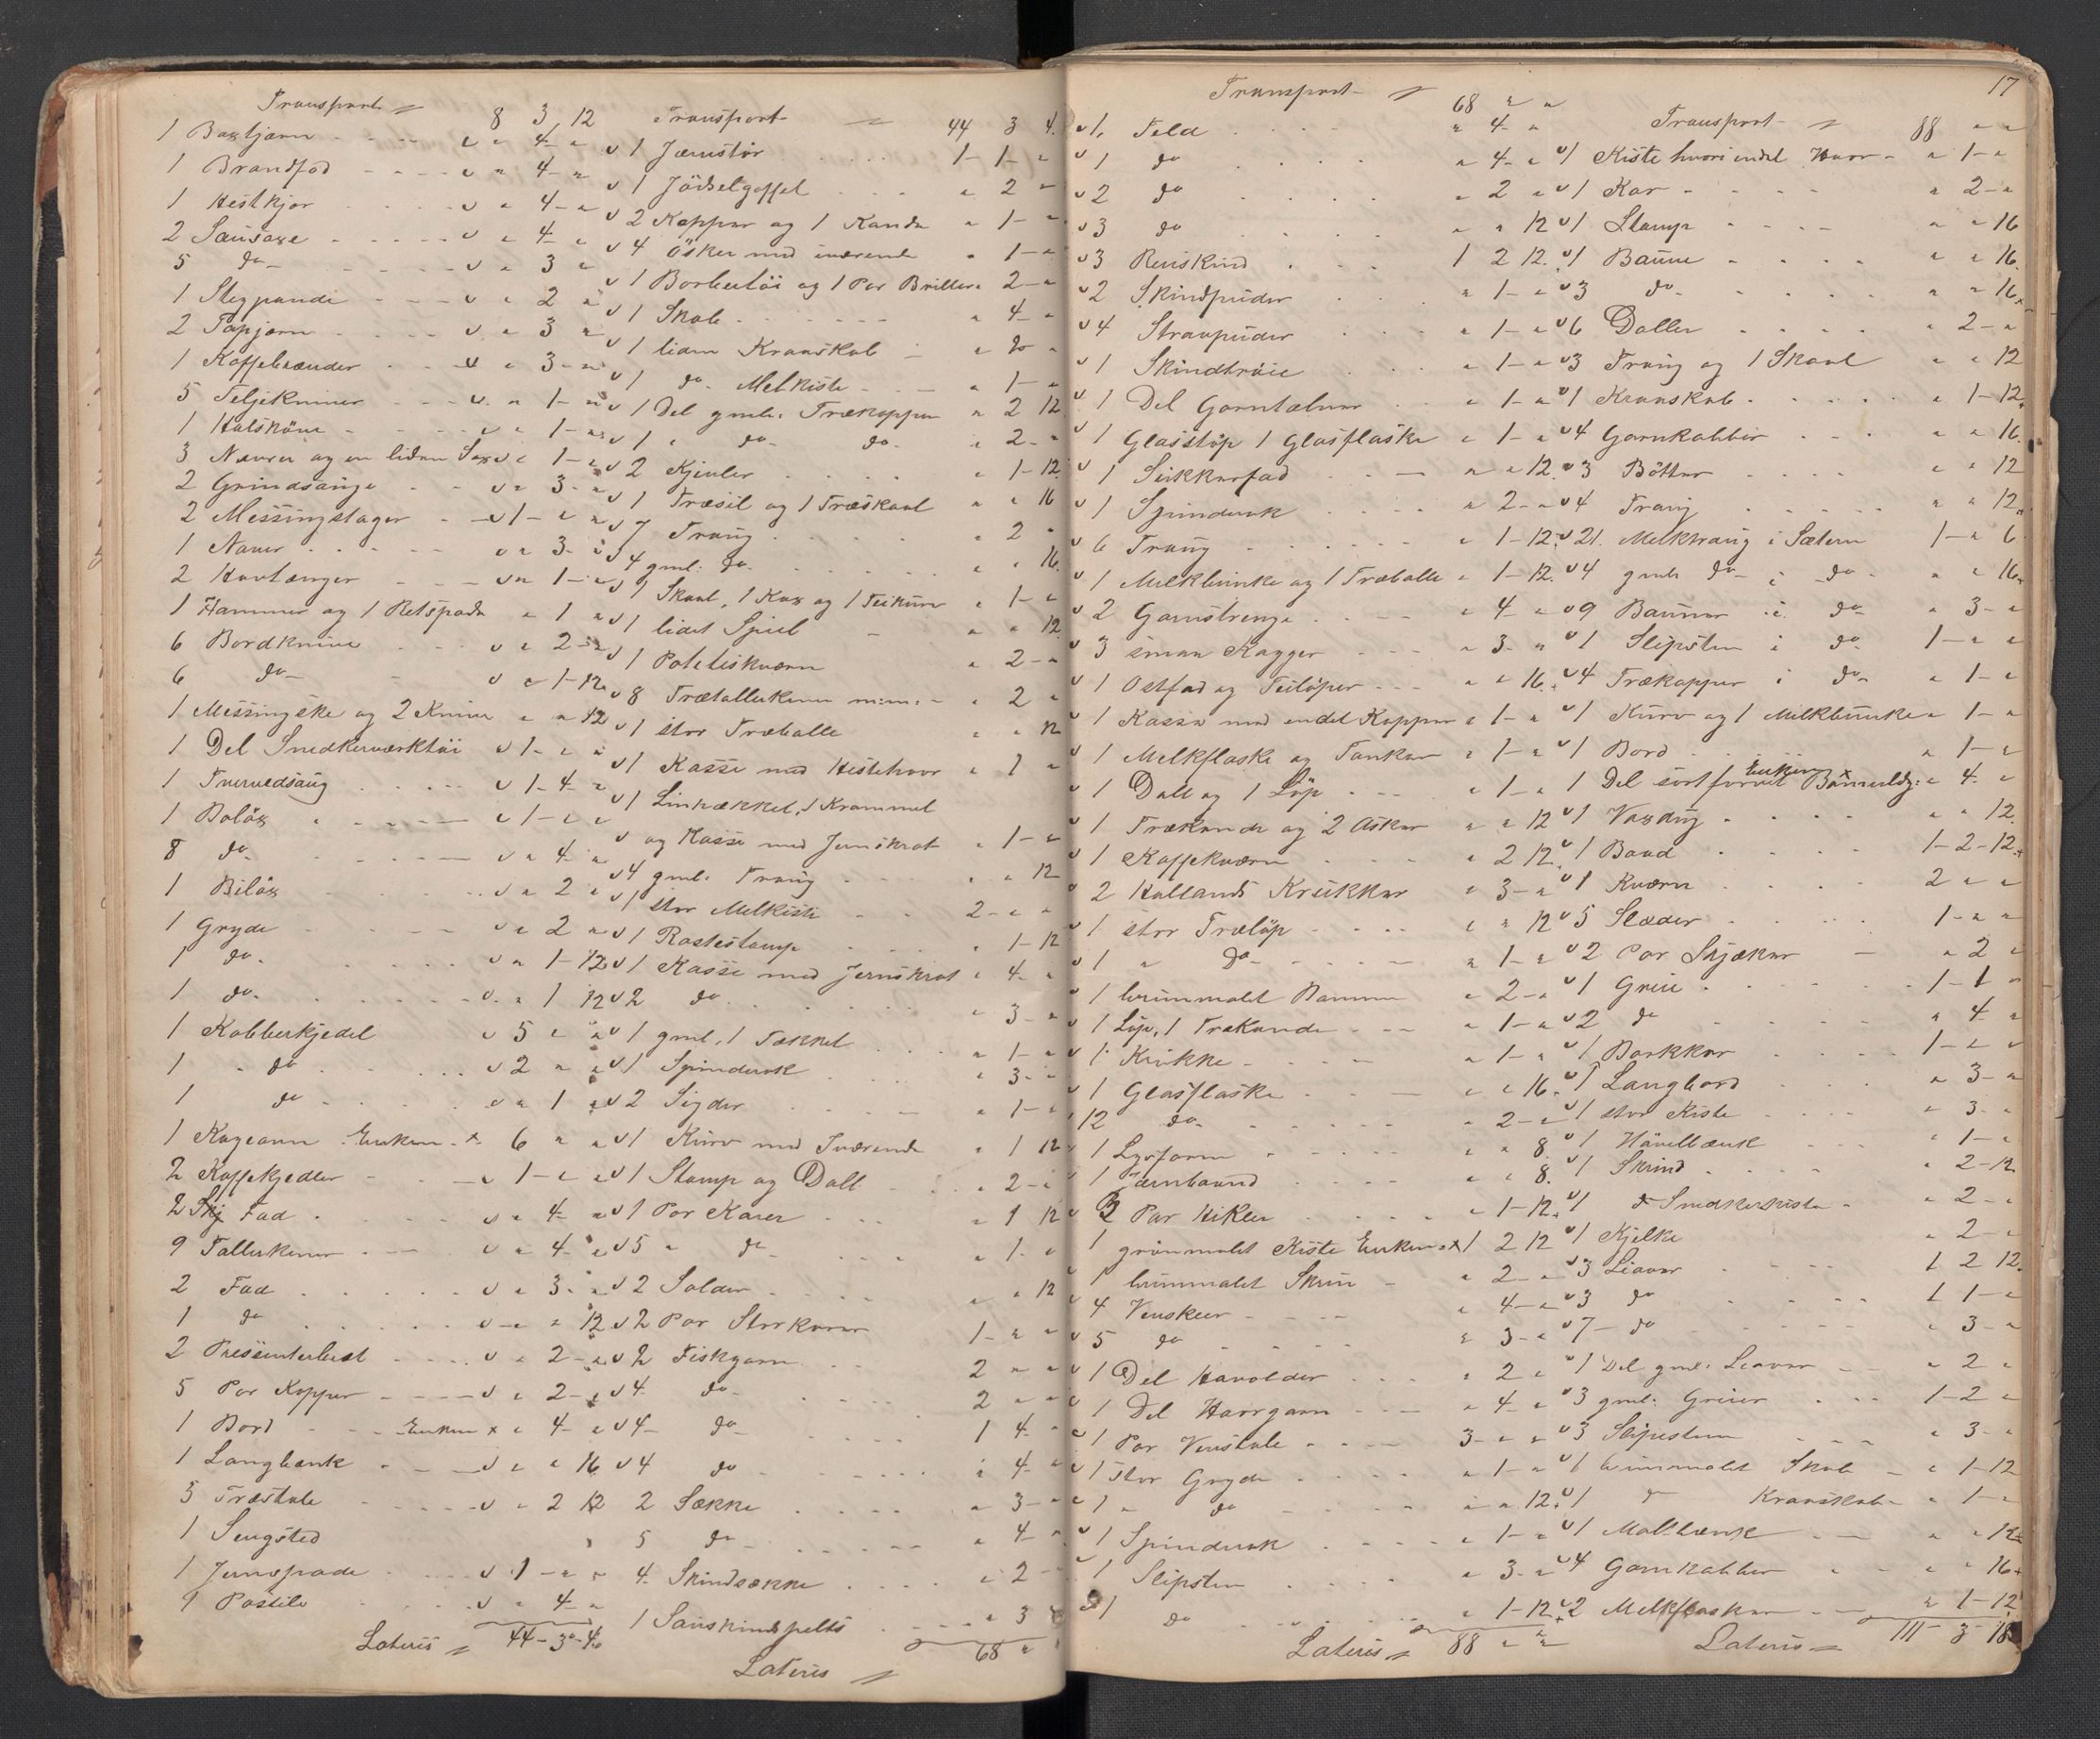 Transport 8 3 12
1 Baxtjærn " 4 "
1 Brandfod " 4 "
1 Hestkjor " 4 "
2 Sausaxe " 4 "
5 do " 3 "
1 Stegpande " 2 "
2 Tapjærn " 3 "
1 Kaffebrænder " 3 "
5 Teljekniver " 1 "
1 " 1 "
3 Navrer og en liden Sax " 1 "
2 Grindsauge " 3 "
2 Messingstager 1 " "
1 Naver " 3 "
2 " 1 "
1 Hammer og 1 Retspade " 1 "
6 Bordknive " 2 "
6 do " 1 12
1 Messingske og 2 Knive " " 12
1 Del Snedkerværktöi 1 " "
1 Tvervedsaug 1 4 "
1 Bolöx 1 " "
8 do " 4 "
1 Bilöx " 2 "
1 Gryde " 2 "
1 do " 1 12
1 do " 1 12
1 Kobberkjedel 5 " "
1 do 2 " "
1 do " 1 "
1 Kageovn Enken x 6 " "
2 Kaffekjedler 1 " "
2 Fad " 4 "
9 Tallerkener " 4 "
2 Fad " 3 "
1 do " " 12
2 Presenterbret " 2 "
5 Par Kopper " 2 "
1 Bord Enken x " 4 "
1 Langbænk " " 16
3 Træstole " 2 12
1 Sengsted
1 Jernspade 1 " "
9 Postile " 4 "
Lateris 44 3 4
Transport 44 3 4
1 Jærnstör 1 1 "
1 Jödselgaffel " 2 "
2 Kopper og 1 Kande " 1 "
4 Ösker med iværende " 1 "
1 Barbertöi og 1 Par Briller " 2 "
1 Skab " 4 "
1 liden Kranskab
1 do Melkiste " 1 "
1 Del gml. Trækopper " 2 12
1 " do do " 2 "
2 Kjevler " 1 12
1 Træsil og 1 Træskaal " " 16
7 Traug " 2 "
4 gml. do " " 16
1 Skaal, 1 Kax og 1 " 1 "
1 lidet Speil " " 12
1 Poteteskværn " 2 "
8 Trætallerkener m.m. " 2 "
1 stor Træballe " " 12
1 Kasse med Hestehaar " 1 "
1 Linhækkel, 1 Krammel
og Kasse med Jernskrot " 1 "
4 gml. Traug " " 12
1 stor Melkiste 2 " "
1 Rostestamp " 1 12
1 Kasse med Jernskrot " 4 "
2 do " 3 "
1 gml. 1 Tækkel " 1 "
1 Spinderok " 3 "
2 Sigder " 1 "
1 Kurv med Iværende " 1 12
1 Stamp og Dall " 2 "
1 Par Karer " 1 12
5 " do " 1 "
2 Solder " " 12
2 Par Storkarer 1 " "
2 Fiskgarn 2 " "
4 do 2 " "
4 do 1 4 "
4 do " 4 "
2 Sække " 3 "
5 do " 4 "
4 Skindsække " 2 "
1 Sauskindspelts " 3
Lateris 68 "
17
Transport 68 " "
1 Feld " 4 "
1 do " 4 "
2 do " 2 "
3 do " " 12
3 Renskind 1 2 12
2 Skindpuder " 1 "
4 Straapuder " 1 "
1 Skindtröie " 1 "
1 Del Garntelner " 1 "
1 Glasstöp 1 Glasflaske " 1 "
1 Sukkerfad " " 12
1 Spinderok " 2 "
6 Traug " 1 12
1 Melkbunke og 1 Træballe " 1 12
2 Garnstrenge " 4 "
3 smaa Kagger " 3 "
1 Ostfad og Teilöper " " 16
1 Kasse med endel Kopper " 1 "
1 Melkflaske og Tankar " 1 "
1 Dall og 1 Löp " 1 "
1 Trækande og 2 Asker " " 12
1 Kaffekværn " 2 12
2 Hollands Krukker " 3 "
1 stor Træløp " " 12
1 " do " 1 "
1 brunmalet Bomme " 2 "
1 Löp, 1 Trækande " 1 "
1 Krukke " 1 "
1 Glasflaske " " 16
12 do " 2 "
1 Lysform " " 8
1 Jærnbaand " " 8
2 Par Hikler " 1 12
1 grönmalet Kiste Enken x 1 2 12
1 brunmalet Skrin " 2 "
4 " 4 "
5 do " 3 "
1 Del Havolder " 2 "
1 Del Haargarn " 4 "
1 Par 3 " "
1 stor Gryde " 1 "
1 " do " " 12
1 Spinderok " 1 "
1 Slipsten " 3 "
1 do " 1 12
Lateris 88 " "
Transport 88 " "
1 Kiste hvori endel Haar " 1 "
1 Kar " 2 "
1 Stamp " " 16
1 Baüne " " 16
3 do " " 16
6 Daller " 2 "
3 Traug og 1 Skaal " " 12
1 Kranskab " 1 12
4 Garnkabber " " 16
3 Bötter " " 12
4 Traug " " 12
21 Melktraug i Sætern 1 " 6
4 gmle do i do " " 16
9 Bauner i do " 3 "
1 Slipsten i do 1 " "
4 Trækopper i do " 1 "
1 Kurv og 1 Melkbunke " 1 "
1 Bord " 1 "
1 Del sortfarvet Bomuldg. Enken x " 4 "
1 Vaxdug " " 12
1 Baad 1 2 12
1 Kværn 2 " "
5 Slæder 1 " "
2 Par Skjæker " 2 "
1 Greie 1 1 "
2 do " 4 "
1 Barkkar 1 " "
1 Langbord " 3 "
1 stor Kiste " 3 "
1 Hövelbænk " 1 "
1 Skrind " 2 12
1 do Snedkerkiste " 2 "
1 Kjelke " 2 "
3 Leaver 1 2 12
3 do 1 1 "
7 do " 3 "
1 Del gml. Leaver " 2 "
3 gml. Greier 1 2 "
3 Slipestene " 3 "
1 brunmalet Skab " 1 12
1 do Kranskab " 1 "
1 Maltbænk " " 12
4 Garnkabber " " 16
2 Melkflasker " 1 12
Lateris 111 3 18